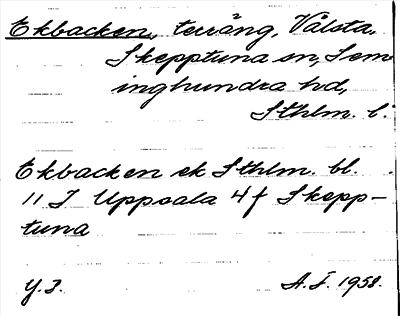 Ekbacken, terräng, Vålsta,
Skepptuna sn, Sem
inghundra hd,
Sthlm. l.
Ekbacken ek Sthlm. bl.
11 I Uppsala 4 f Skepp-
tuna
Y.I. A.F. 1958.